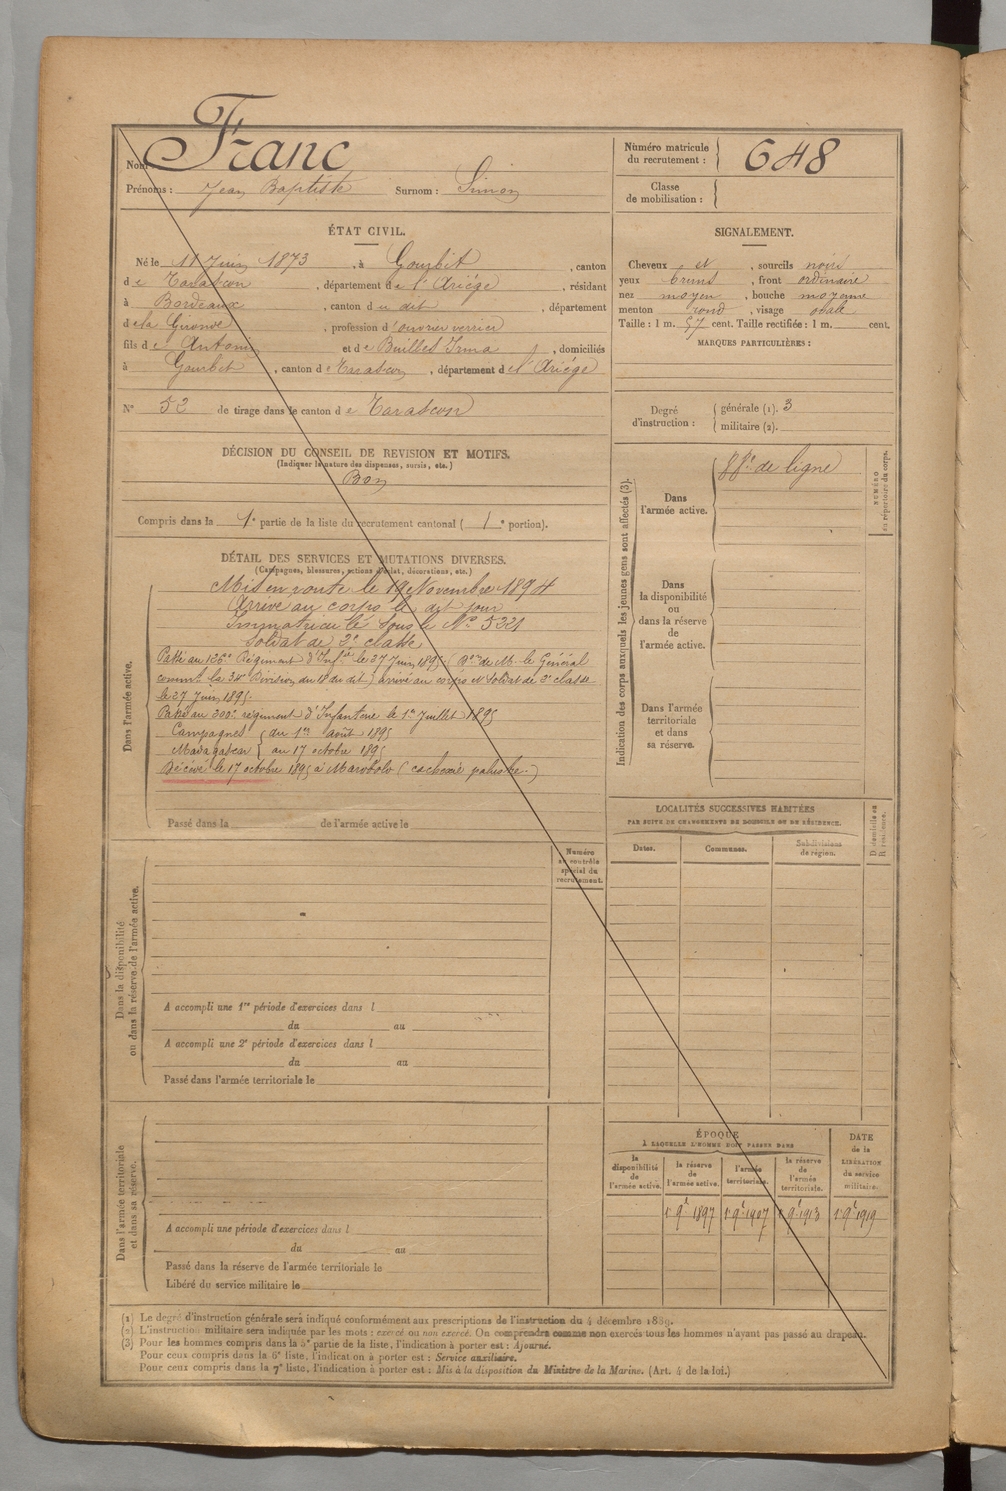 Nom Franc
Prénoms : Jean Baptiste Surnom : Simon
Numéro matricule du recrutement : 648
Classe de mobilisation :
ÉTAT CIVIL.
Né le 11 Juin 1873, à Gourbit, canton
de Tarascon, département de l'Ariége, résidant
à Bordeaux, canton du dit, département
de la Gironde, profession d'ouvrier verrier
fils de Antoine et de Builles Irma, domiciliés
à Gourbit, canton de Tarascon, département de l'Ariége
N° 52 de tirage dans le canton de Tarascon
SIGNALEMENT.
Cheveux et, sourcils noirs
yeux bruns, front ordinaire
nez moyen, bouche moyenne
menton rond, visage ovale
Taille : 1 m. 57 cent. Taille rectifiée : 1 m. cent.
MARQUES PARTICULIÈRES :
Degré d'instruction : générale (1). 3
militaire (2).
DÉCISION DU CONSEIL DE REVISION ET MOTIFS.
(Indiquer la nature des dispenses, sursis, etc.)
Bon
Compris dans la 1e partie de la liste du recrutement cantonal ( 1e portion).
DÉTAIL DES SERVICES ET MUTATIONS DIVERSES.
(Campagnes, blessures, actions d'éclat, décorations, etc.)
Dans l'armée active.
Mis en route le 19 Novembre 1894
Arrivé au corps le dit jour
Immatriculé sous le No 5221
Soldat de 2e classe
Passé au 126e Régiment d'Infie le 27 Juin 1895 ( de M. le Général
commt la 34e Division du 18 du dit) arrivé au corps et Soldat de 2e classe
le 27 Juin 1895.
Passé au 200e régiment d'Infanterie le 1er Juillet 1895
Campagnes du 1er août 1895
Madagascar au 17 octobre 1895
Décédé le 17 octobre 1895 à Marololo (cachexie palustre.)
Passé dans la de l'armée active le
Indication des corps auxquels les jeunes gens sont affectés (3).
Dans l'armée active. 88e de ligne
NUMÉRO au répertoire du corps.
Dans la disponibilité ou dans la réserve de l'armée active.
Dans l'armée territoriale et dans sa réserve.
LOCALITÉS SUCCESSIVES HABITÉES
PAR SUITE DE CHANGEMENTS DE DOMICILE OU DE RÉSIDENCE.
Dates. Communes. Subdivisions de région. D. domicile ou R. résidence.
Dans la disponibilité ou dans la réserve de l'armée active.
Numéro au contrôle spécial du recrutement.
A accompli une 1re période d'exercices dans l
du au
A accompli une 2e période d'exercices dans l
du au
Passé dans l'armée territoriale le
Dans l'armée territoriale et dans sa réserve.
A accompli une période d'exercices dans l
du au
Passé dans la réserve de l'armée territoriale le
Libéré du service militaire le
ÉPOQUE
À LAQUELLE L'HOMME DOIT PASSER DANS
la disponibilité de l'armée active. la réserve de l'armée active. l'armée territoriale. la réserve de l'armée territoriale. DATE de la LIBÉRATION du service militaire.
1er 9bre 1897 1er 9bre 1907 1er 9bre 1913 1er 9bre 1919
(1) Le degré d'instruction générale sera indiqué conformément aux prescriptions de l'instruction du 4 décembre 1889.
(2) L'instruction militaire sera indiquée par les mots : exercé ou non exercé. On comprendra comme non exercés tous les hommes n'ayant pas passé au drapeau.
(3) Pour les hommes compris dans la 5e partie de la liste, l'indication à porter est : Ajourné.
Pour ceux compris dans la 6e liste, l'indication à porter est : Service auxiliaire.
Pour ceux compris dans la 7e liste, l'indication à porter est : Mis à la disposition du Ministre de la Marine. (Art. 4 de la loi.)